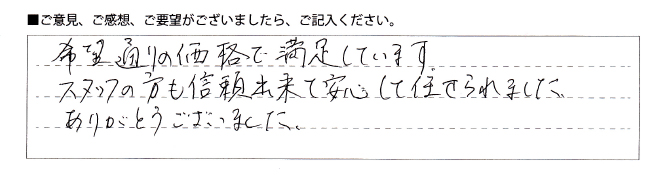 ■ご意見、ご感想、ご要望がございましたら、ご記入ください。
希望通りの価格で満足しています。
スタッフの方も信頼出来て安心して任せられました。
ありがとうございました。